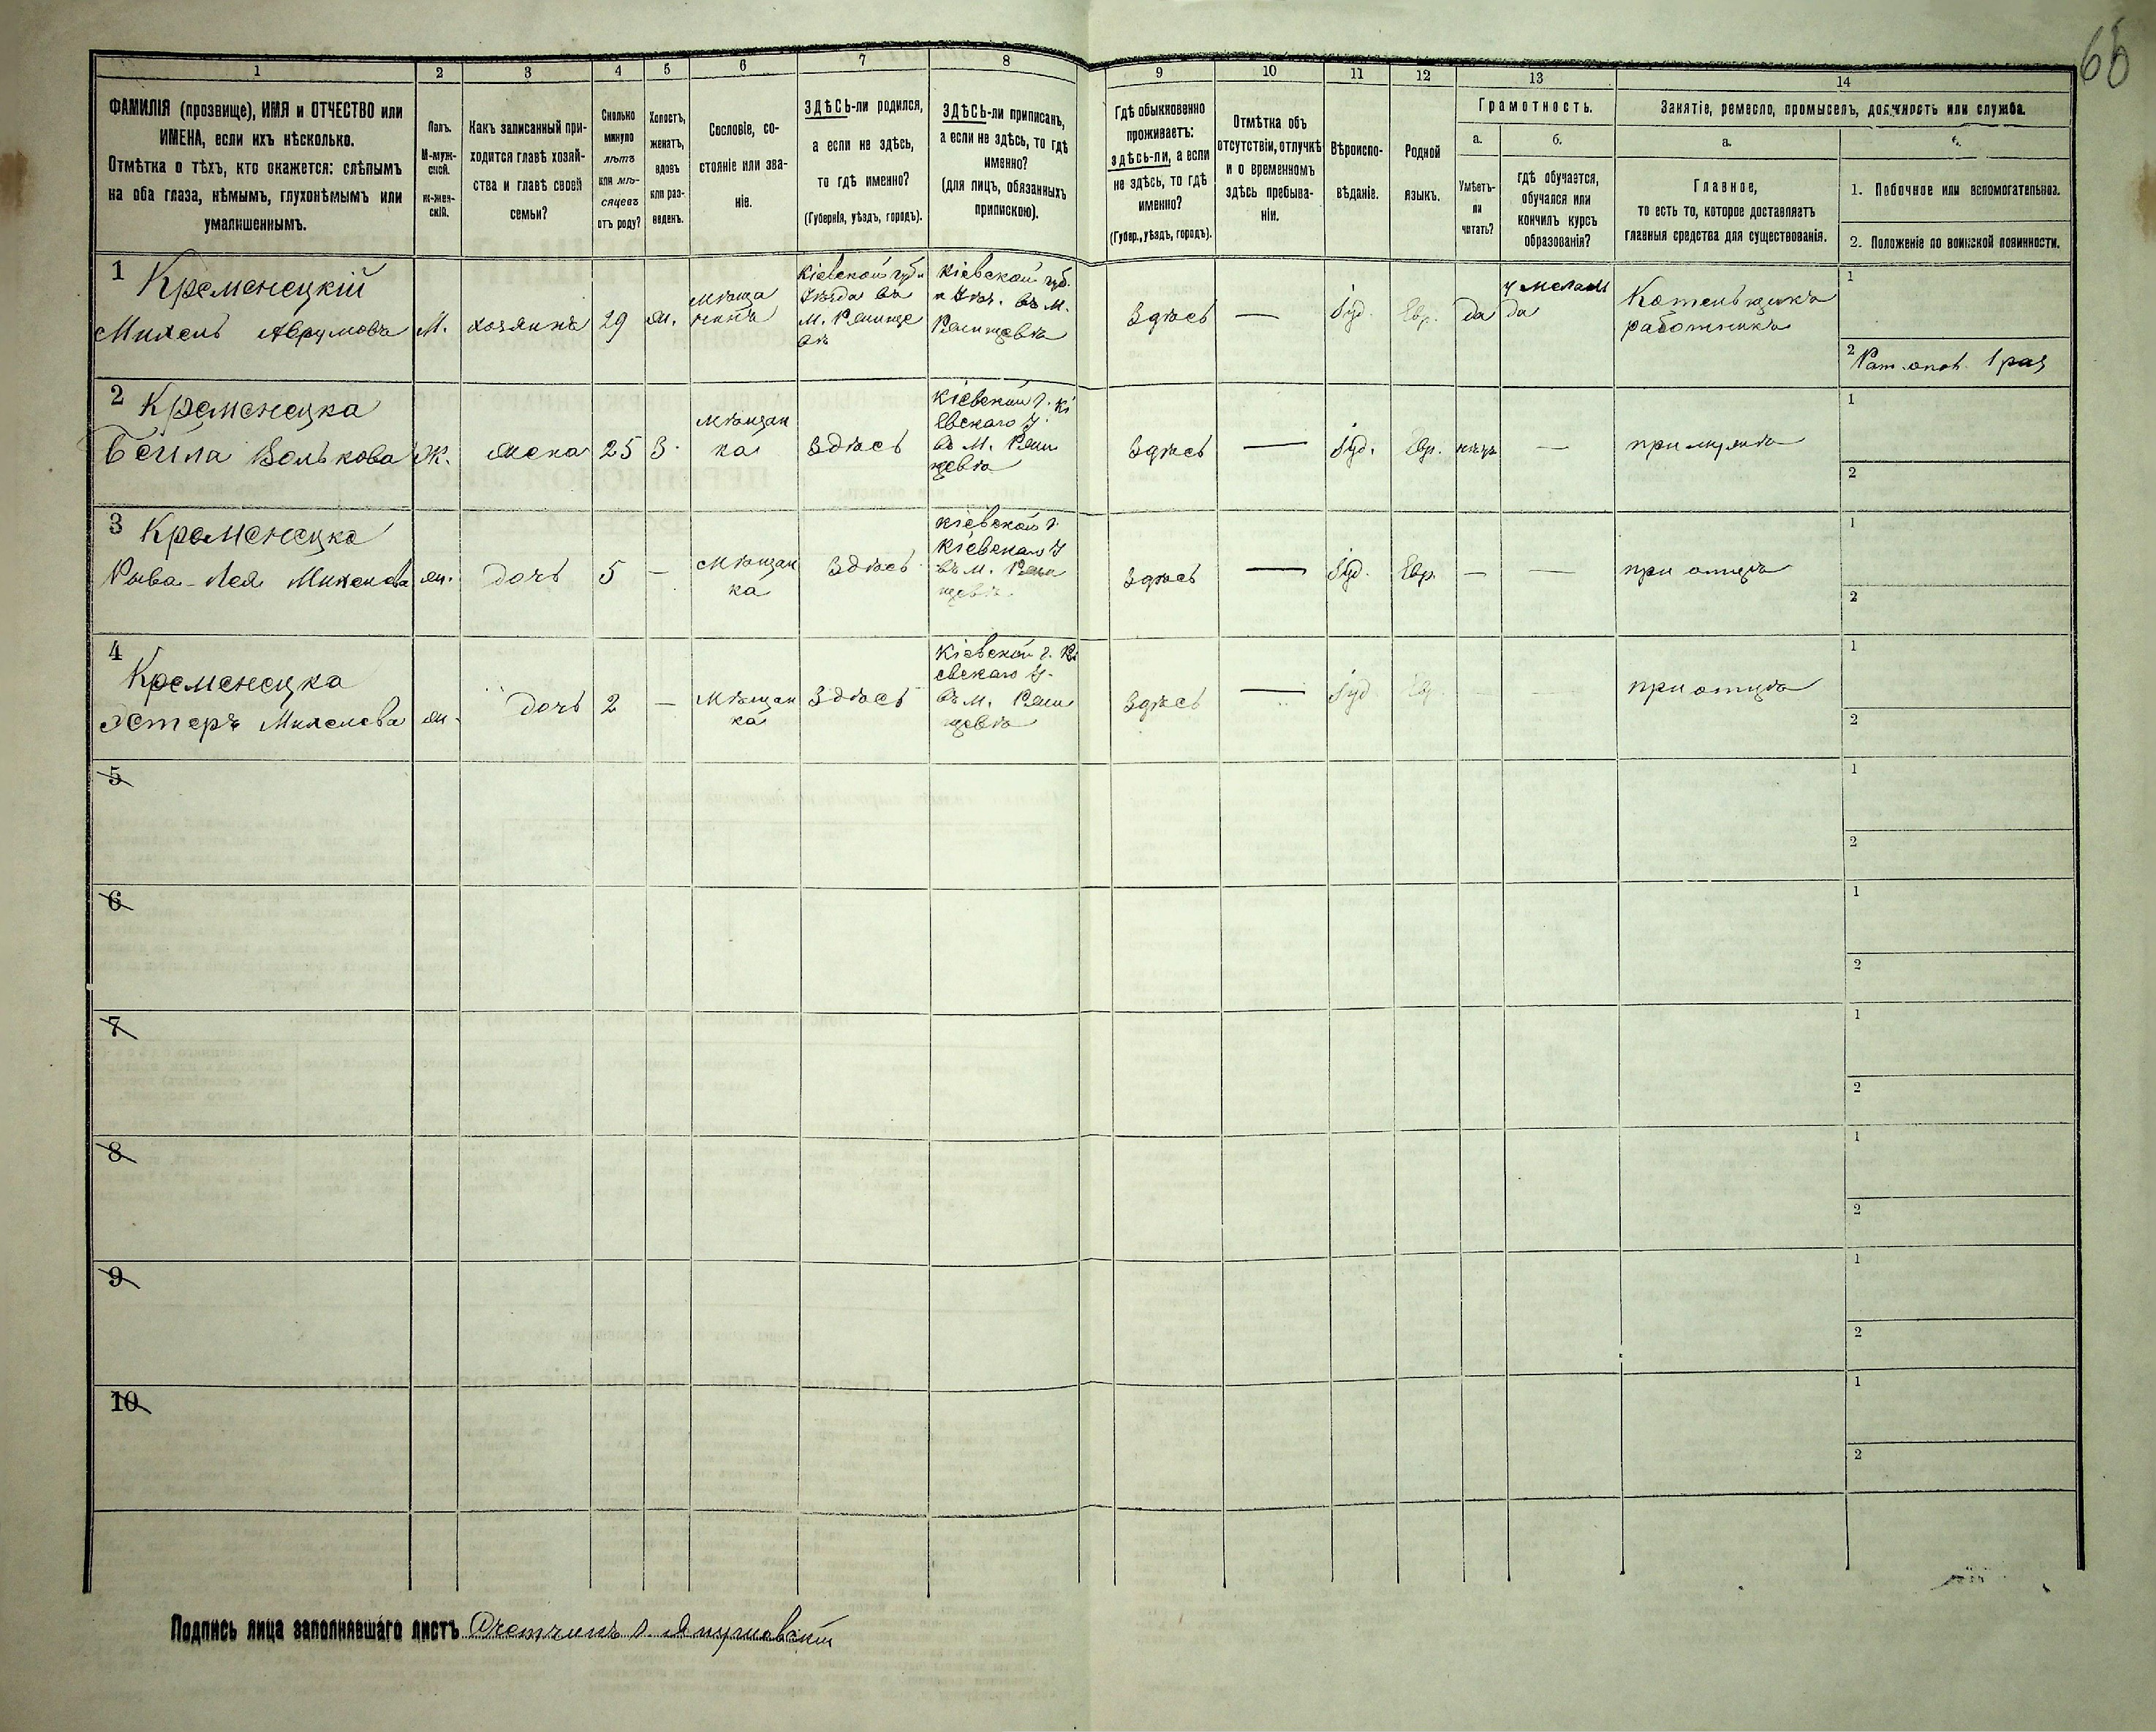 66
1
2
3
4
5
6
7
8
9
10
11
12
13
14
ФАМИЛІЯ (прозвище), ИМЯ и ОТЧЕСТВО или
ИМЕНА, если ихъ нѣсколько.
Отмѣтка о тѣхъ, кто окажется: слѣпымъ
на оба глаза, нѣмымъ, глухонѣмымъ или
умалишеннымъ.
Полъ.
М-муж-
ской.
ж-жен-
скій.
Какъ записанный при-
ходится главѣ хозяй-
ства и главѣ своей
семьи?
Сколько
минуло
лѣтъ
или мѣ-
сяцевъ
отъ роду?
Холостъ,
женатъ,
вдовъ
или раз-
веденъ.
Сословіе, со-
стояніе или зва-
ніе.
ЗДѢСЬ-ли родился,
а если не здѣсь,
то гдѣ именно?
(Губернія, уѣздъ, городъ).
ЗДѢСЬ-ли приписанъ,
а если не здѣсь, то гдѣ
именно?
(для лицъ, обязанныхъ
припискою).
Гдѣ обыкновенно
проживаетъ:
здѣсь-ли, а если
не здѣсь, то гдѣ
именно?
(Губер., уѣздъ, городъ).
Отмѣтка объ
отсутствіи, отлучкѣ
и о временномъ
здѣсь пребыва-
ніи.
Вѣроиспо-
вѣданіе.
Родной
языкъ.
Грамотность.
а.
Умѣетъ-
ли
читать?
б.
гдѣ обучается,
обучался или
кончилъ курсъ
образованія?
Занятіе, ремесло, промыселъ, должность или служба.
а.
Главное,
то есть то, которое доставляетъ
главныя средства для существованія.
1. Побочное или вспомогательное.
2. Положеніе по воинской повинности.
1 Кременецкій
Михель Аврумовъ
М.
хозяинъ
29
ж.
мѣща
нинъ
Кіевской губ. и
Уѣзда въ
м.
Кіевской губ.
и Уѣз. въ м.
Здѣсь
—
Іуд.
Евр.
да
да
работникъ
1
2
1 раз
2 Кременецка
Бейла Волькова
Ж.
жена
25
З.
мѣщан
ка
Здѣсь
Кіевской г. Кі
евскаго У.
въ м.
Здѣсь
—
Іуд.
Евр.
нѣтъ
—
при мужѣ
1
2
3 Кременецка
Рыва-Лея Михелева
ж.
дочь
5
—
Мѣщан
ка
Здѣсь
Кіевской г.
Кіевскаго У
въ м.
Здѣсь
—
Іуд.
Евр.
—
—
при отцѣ
1
2
4
Кременецка
Эстеръ Михелева
ж.
дочь
2
—
Мѣщан
ка
Здѣсь
Кіевской г. Кі
евскаго У.
въ м.
Здѣсь
—
Іуд
при отцѣ
1
2
5
1
2
6
1
2
7
1
2
8
1
2
9
1
2
10
1
2
Подпись лица заполнявшаго листъ